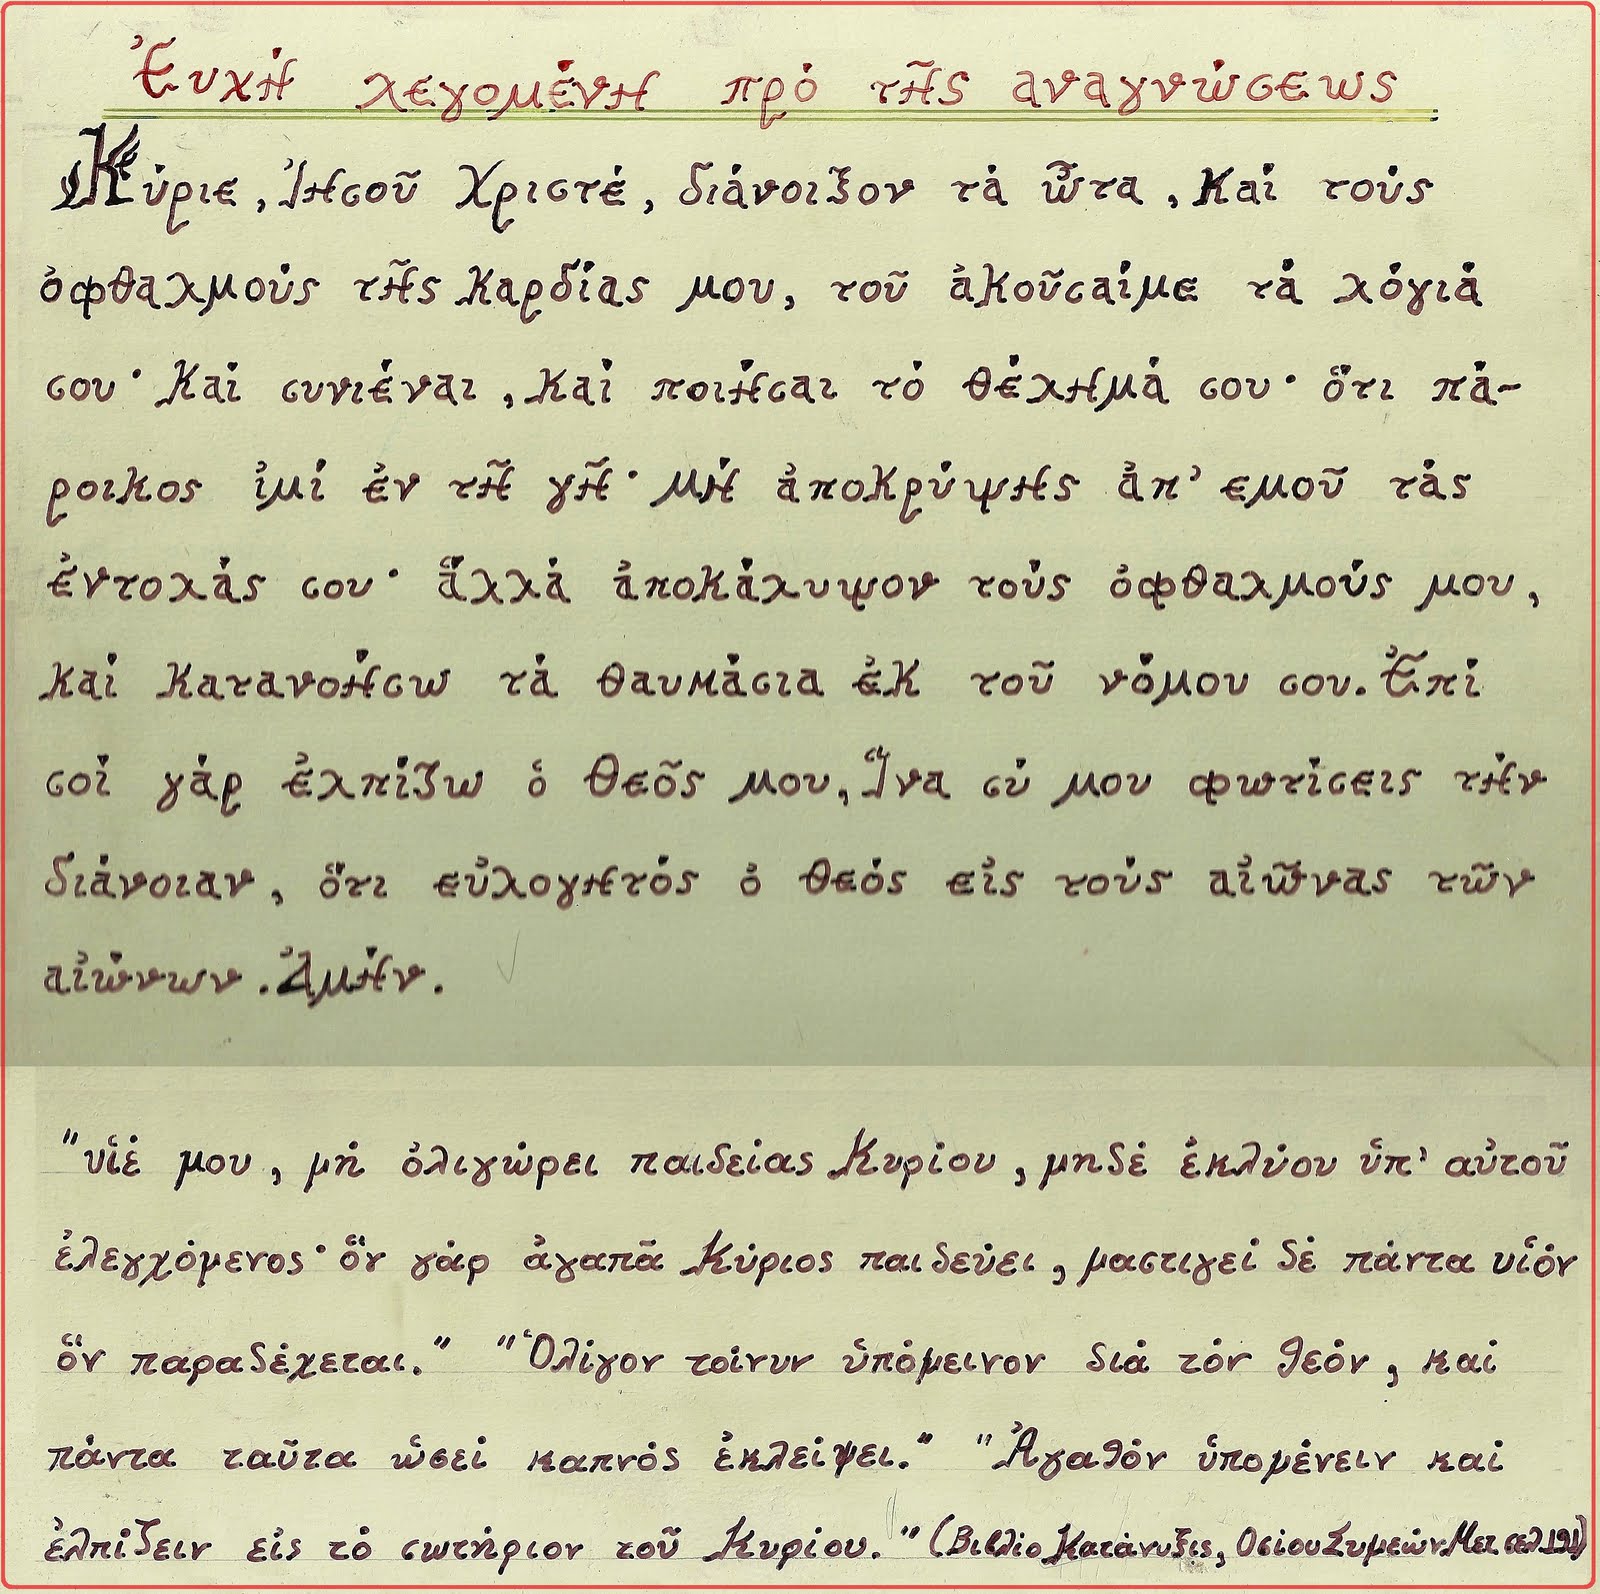 Ἐυχή λεγομένη πρό τῆς αναγνώσεως
Κύριε, Ἰησοῦ Χριστέ, διάνοιξον τά ὦτα, Καί τούς
ὀφθαλμούς τῆς Καρδίας μου, τοῦ ἀκοῦσαίμε τά λόγιά
σου· Καί συνιέναι, Καί ποιήσαι τό θέλημά σου· ὅτι πά-
ροικος ἰμί ἐν τῆ γῆ· μή ἀποκρύψης ἀπ’ εμοῦ τάς
ἐντολάς σου· ἅλλά ἀποκάλυψον τούς ὀφθαλμούς μου,
καί κατανοήσω τά θαυμάσια ἐκ τοῦ νόμου σου. Ἐπί
σοί γάρ ἐλπίζω ὁ Θεός μου, Ἵνα σύ μου φωτίσεις τήν
διάνοιαν, ὅτι εὐλογητός ὁ θεός εἰς τούς αἰῶνας τῶν
αἰώνων. Ἀμήν.
"υἱέ μου, μή ὀλιγώρει παιδείας Κυρίου, μηδέ ἐκλύου ὑπ’ αὐτοῦ
ἐλεγχόμενος· ὅν γάρ ἀγαπᾶ Κύριος παιδεύει, μαστιγεί δέ πάντα υἱόν
ὅν παραδέχεται." "Ὀλίγον τοίνυν ὑπόμεινον διά τόν θεόν, καί
πάντα ταῦτα ὡσεί καπνός ἐκλείψει." "Ἀγαθόν ὑπομένειν καί
ἐλπίζειν εἰς τό σωτήριον τοῦ Κυρίου." (Βιβλίο Κατάνυξις, Οσίου Συμεών Μετ σελ 191)